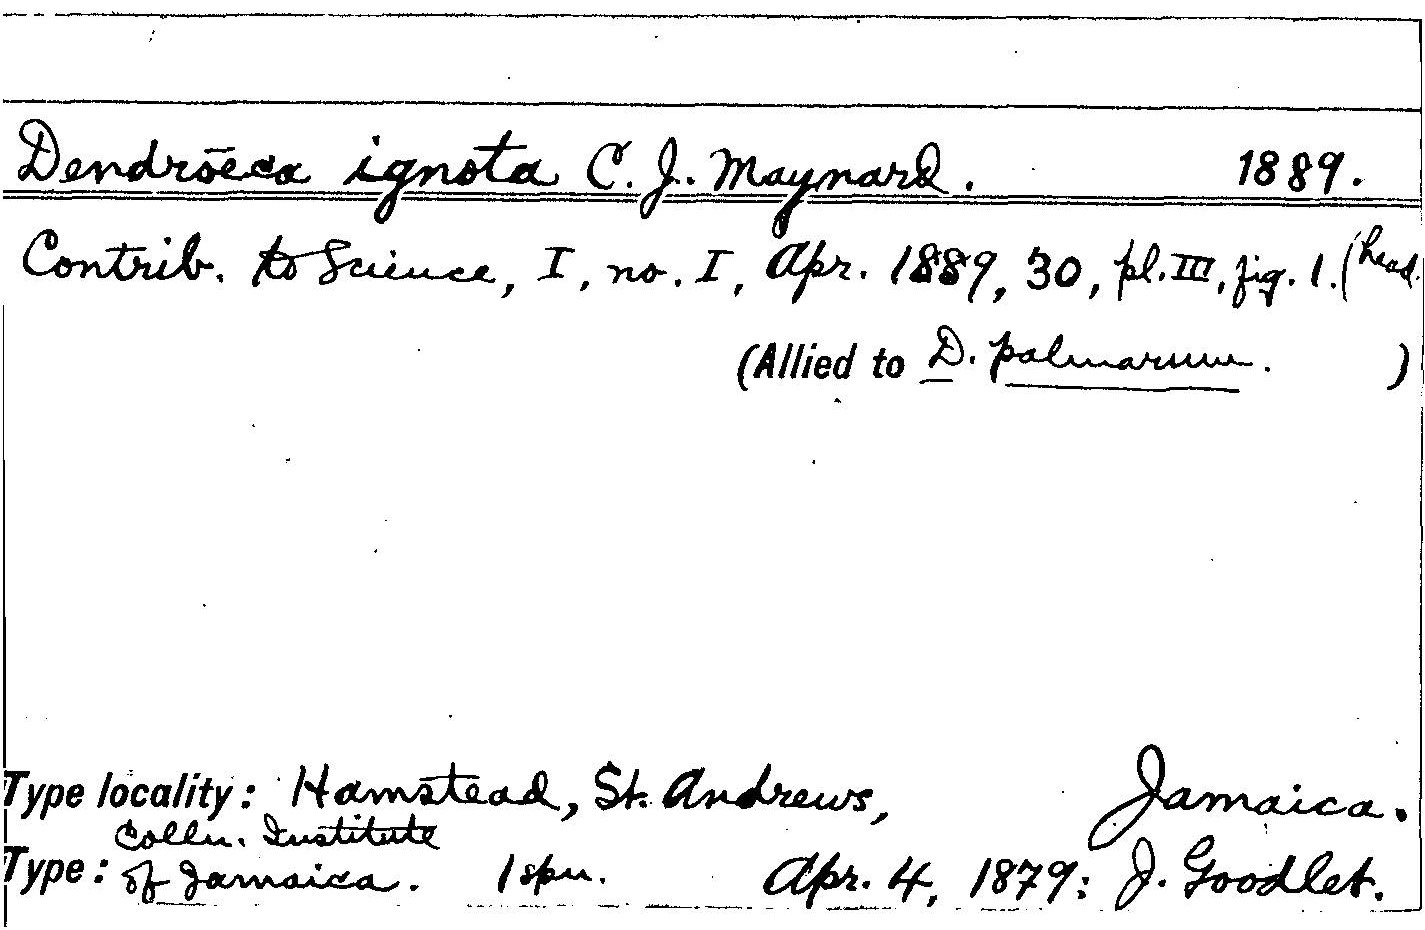 Dendrōeca ignota C. J. Maynard. 1889.
Contrib. to Science, I, no. I, Apr. 1889, 30, pl. III, fig. 1. (head.
(Allied to D. palmarum. )
Type locality: Hamstead, St. Andrews, Jamaica.
Colln. Institute
Type: of Jamaica. 1 spn. Apr. 4, 1879: J. Goodlet.